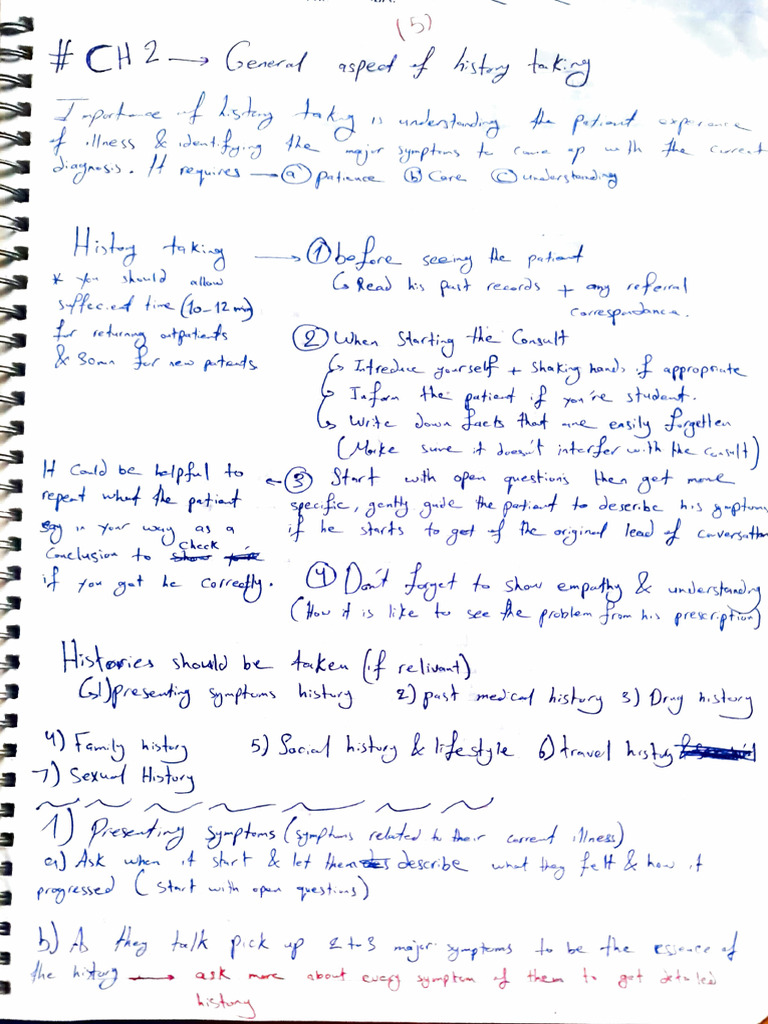 (5)
# CH 2 → General aspect of history taking
Importance of history taking is understanding the patient experience
of illness & identifying the major symptoms to come up with the current
diagnosis. It requires → (a) patience (b) Care (c) understanding
History taking → (1) before seeing the patient
* You should allow
suffecient time (10-12 min)
for returning outpatients
& 30mn for new patents
↳ Read his past records + any referral
correspondance.
(2) When Starting the Consult
↳ Intreduce yourself + shaking hands if appropriate
↳ Inform the patient if you're student.
↳ Write down facts that are easily forgetten
(Make sure it doesn't interfer with the consult)
(3) Start with open questions then get more
specific, gently guide the patient to describe his symptoms
if he starts to get of the original lead of conversation
It could be helpful to ←
repeat what the patient
say in your way as a
conclusion to check
if you got he correctly.
(4) Don't forget to show empathy & understanding
(How it is like to see the problem from his prescription)
Histories should be taken (if relivant)
↳1) presenting symptoms history 2) past medical history 3) Drug history
4) Family history 5) Social history & lifestyle 6) travel history
7) Sexual History
1) Presenting symptoms (symptoms related to their current illness)
a) Ask when it start & let them describe what they felt & how it
progressed (start with open questions)
b) As they talk pick up 2 to 3 major symptoms to be the essence of
the history → ask more about every symptom of them to get detailed
history